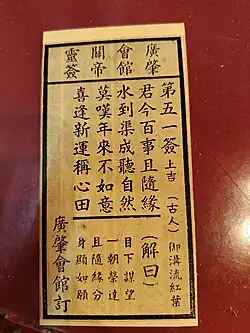 廣肇
會館
關帝
靈簽
第五一簽 上吉 (古人) 御溝流紅葉
君今百事且隨緣
水到渠成聽自然
莫嘆年來不如意
喜逢新運稱心田
(解曰)
目下謀望
一朝榮達
且隨緣分
身顯如願
廣肇會館訂